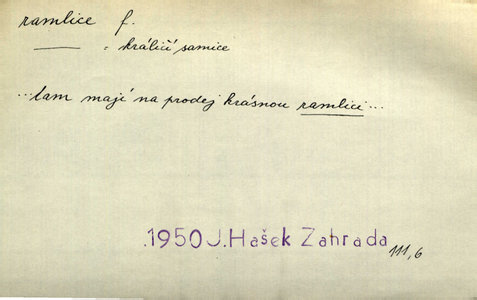 ramlice f.
—— = králičí samice
...tam mají na prodej krásnou ramlici...
.1950 J.Hašek Zahrada 111,6